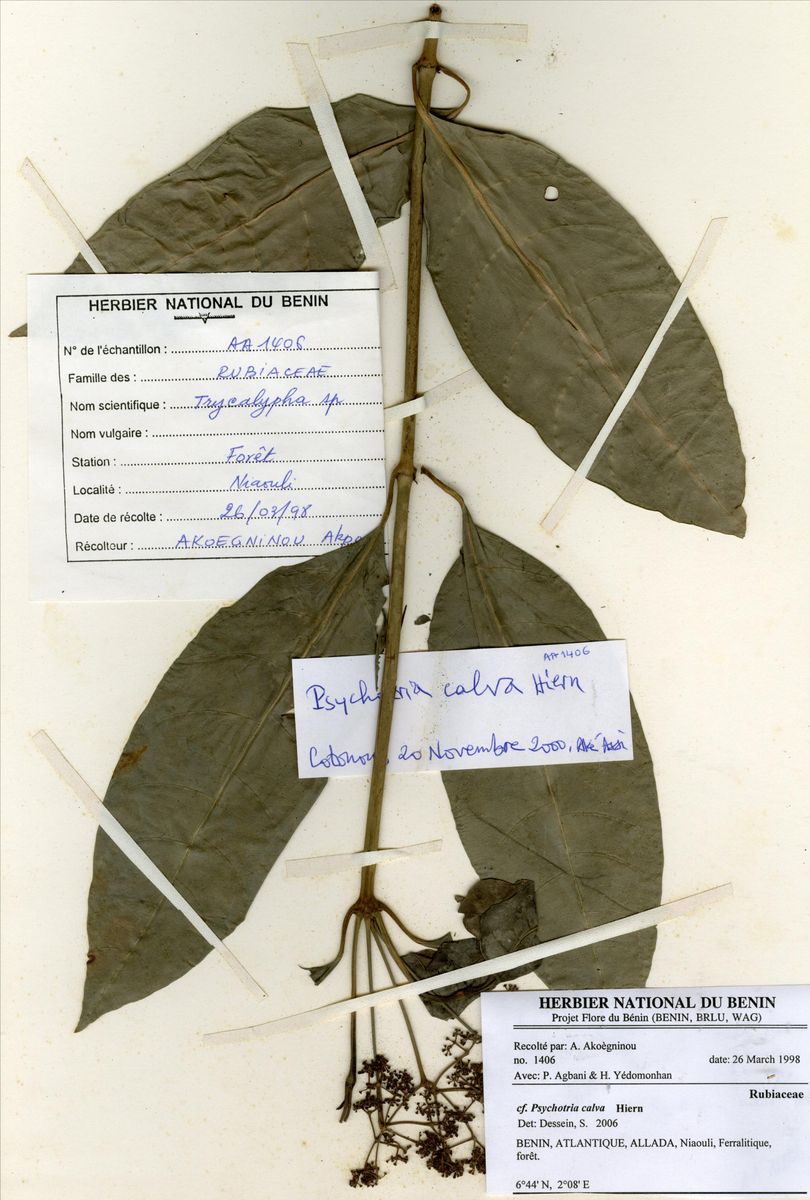 HERBIER NATIONAL DU BENIN
N° de l'échantillon : AA 1406
Famille des : RUBIACEAE
Nom scientifique : Trycalypha sp
Nom vulgaire :
Station : Forêt
Localité : Niaouli
Date de récolte : 26/03/98
Récolteur : AKOEGNINOU
AA1406
Psychotria calva Hiern
Cotonou, 20 Novembre 2000, Aké Assi
HERBIER NATIONAL DU BENIN
Projet Flore du Bénin (BENIN, BRLU, WAG)
Recolté par: A. Akoègninou
no. 1406 date: 26 March 1998
Avec: P. Agbani & H. Yédomonhan
Rubiaceae
cf. Psychotria calva Hiern
Det: Dessein, S. 2006
BENIN, ATLANTIQUE, ALLADA, Niaouli, Ferralitique,
forêt.
6°44' N, 2°08' E